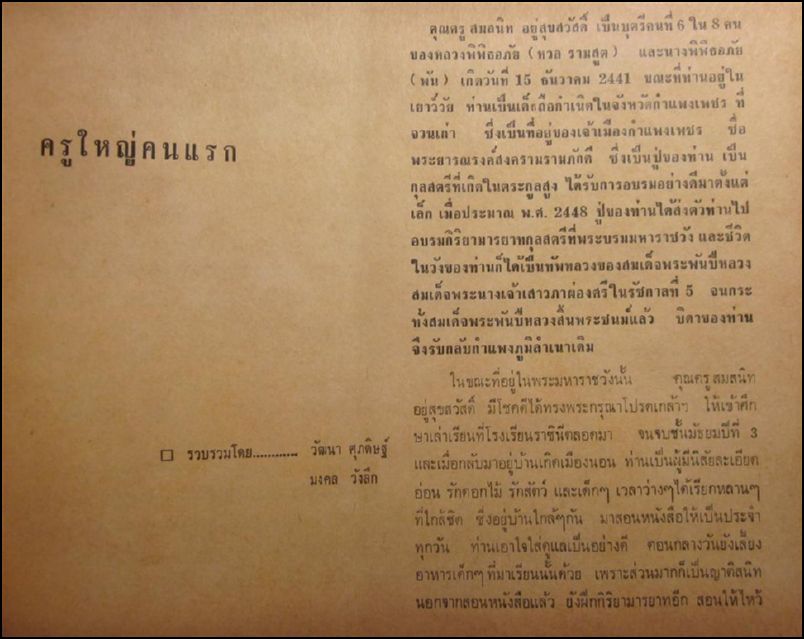 ครูใหญ่คนแรก
□ รวบรวมโดย............ วัฒนา ศุภดิษฐ์
มงคล วังลึก
คุณครูสมสนิท อยู่สุขสวัสดิ์ เป็นบุตรีคนที่ 6 ใน 8 คน
ของหลวงพิพิธอภัย (หวล รามสูต) และนางพิพิธอภัย
(พัน) เกิดวันที่ 15 ธันวาคม 2441 ขณะที่ท่านอยู่ใน
เยาว์วัย ท่านเป็นเด็กถือกำเนิดในจังหวัดกำแพงเพชร ที่
จวนเก่า ซึ่งเป็นที่อยู่ของเจ้าเมืองกำแพงเพชร ชื่อ
พระยารณรงค์สงครามรามภักดี ซึ่งเป็นปู่ของท่าน เป็น
กุลสตรีที่เกิดในตระกูลสูง ได้รับการอบรมอย่างดีมาตั้งแต่
เล็ก เมื่อประมาณ พ.ศ. 2448 ปู่ของท่านได้ส่งตัวท่านไป
อบรมกิริยามารยาทกุลสตรีที่พระบรมมหาราชวัง และชีวิต
ในวังของท่านก็ได้เป็นหัพหลวงของสมเด็จพระพันปีหลวง
สมเด็จพระนางเจ้าเสาวภาผ่องศรีในรัชกาลที่ 5 จนกระ
ทั่งสมเด็จพระพันปีหลวงสิ้นพระชนม์แล้ว บิดาของท่าน
จึงรับกลับกำแพงภูมิลำเนาเดิม
ในขณะที่อยู่ในพระมหาราชวังนั้น คุณครูสมสนิท
อยู่สุขสวัสดิ์ มีโชคดีได้ทรงพระกรุณาโปรดเกล้าฯ ให้เข้าศึก
ษาเล่าเรียนที่โรงเรียนราชินีตลอดมา จนจบชั้นมัธยมปีที่ 3
และเมื่อกลับมาอยู่บ้านเกิดเมืองนอน ท่านเป็นผู้มีนิสัยละเอียด
อ่อน รักดอกไม้ รักสัตว์ และเด็กๆ เวลาว่างๆได้เรียกหลานๆ
ที่ใกล้ชิด ซึ่งอยู่บ้านใกล้ๆกัน มาสอนหนังสือให้เป็นประจำ
ทุกวัน ท่านเอาใจใส่ดูแลเป็นอย่างดี ตอนกลางวันยังเลี้ยง
อาหารเด็กๆ ที่มาเรียนนั้นด้วย เพราะส่วนมากก็เป็นญาติสนิท
นอกจากสอนหนังสือแล้ว ยังฝึกกิริยามารยาทอีก สอนให้ไหว้